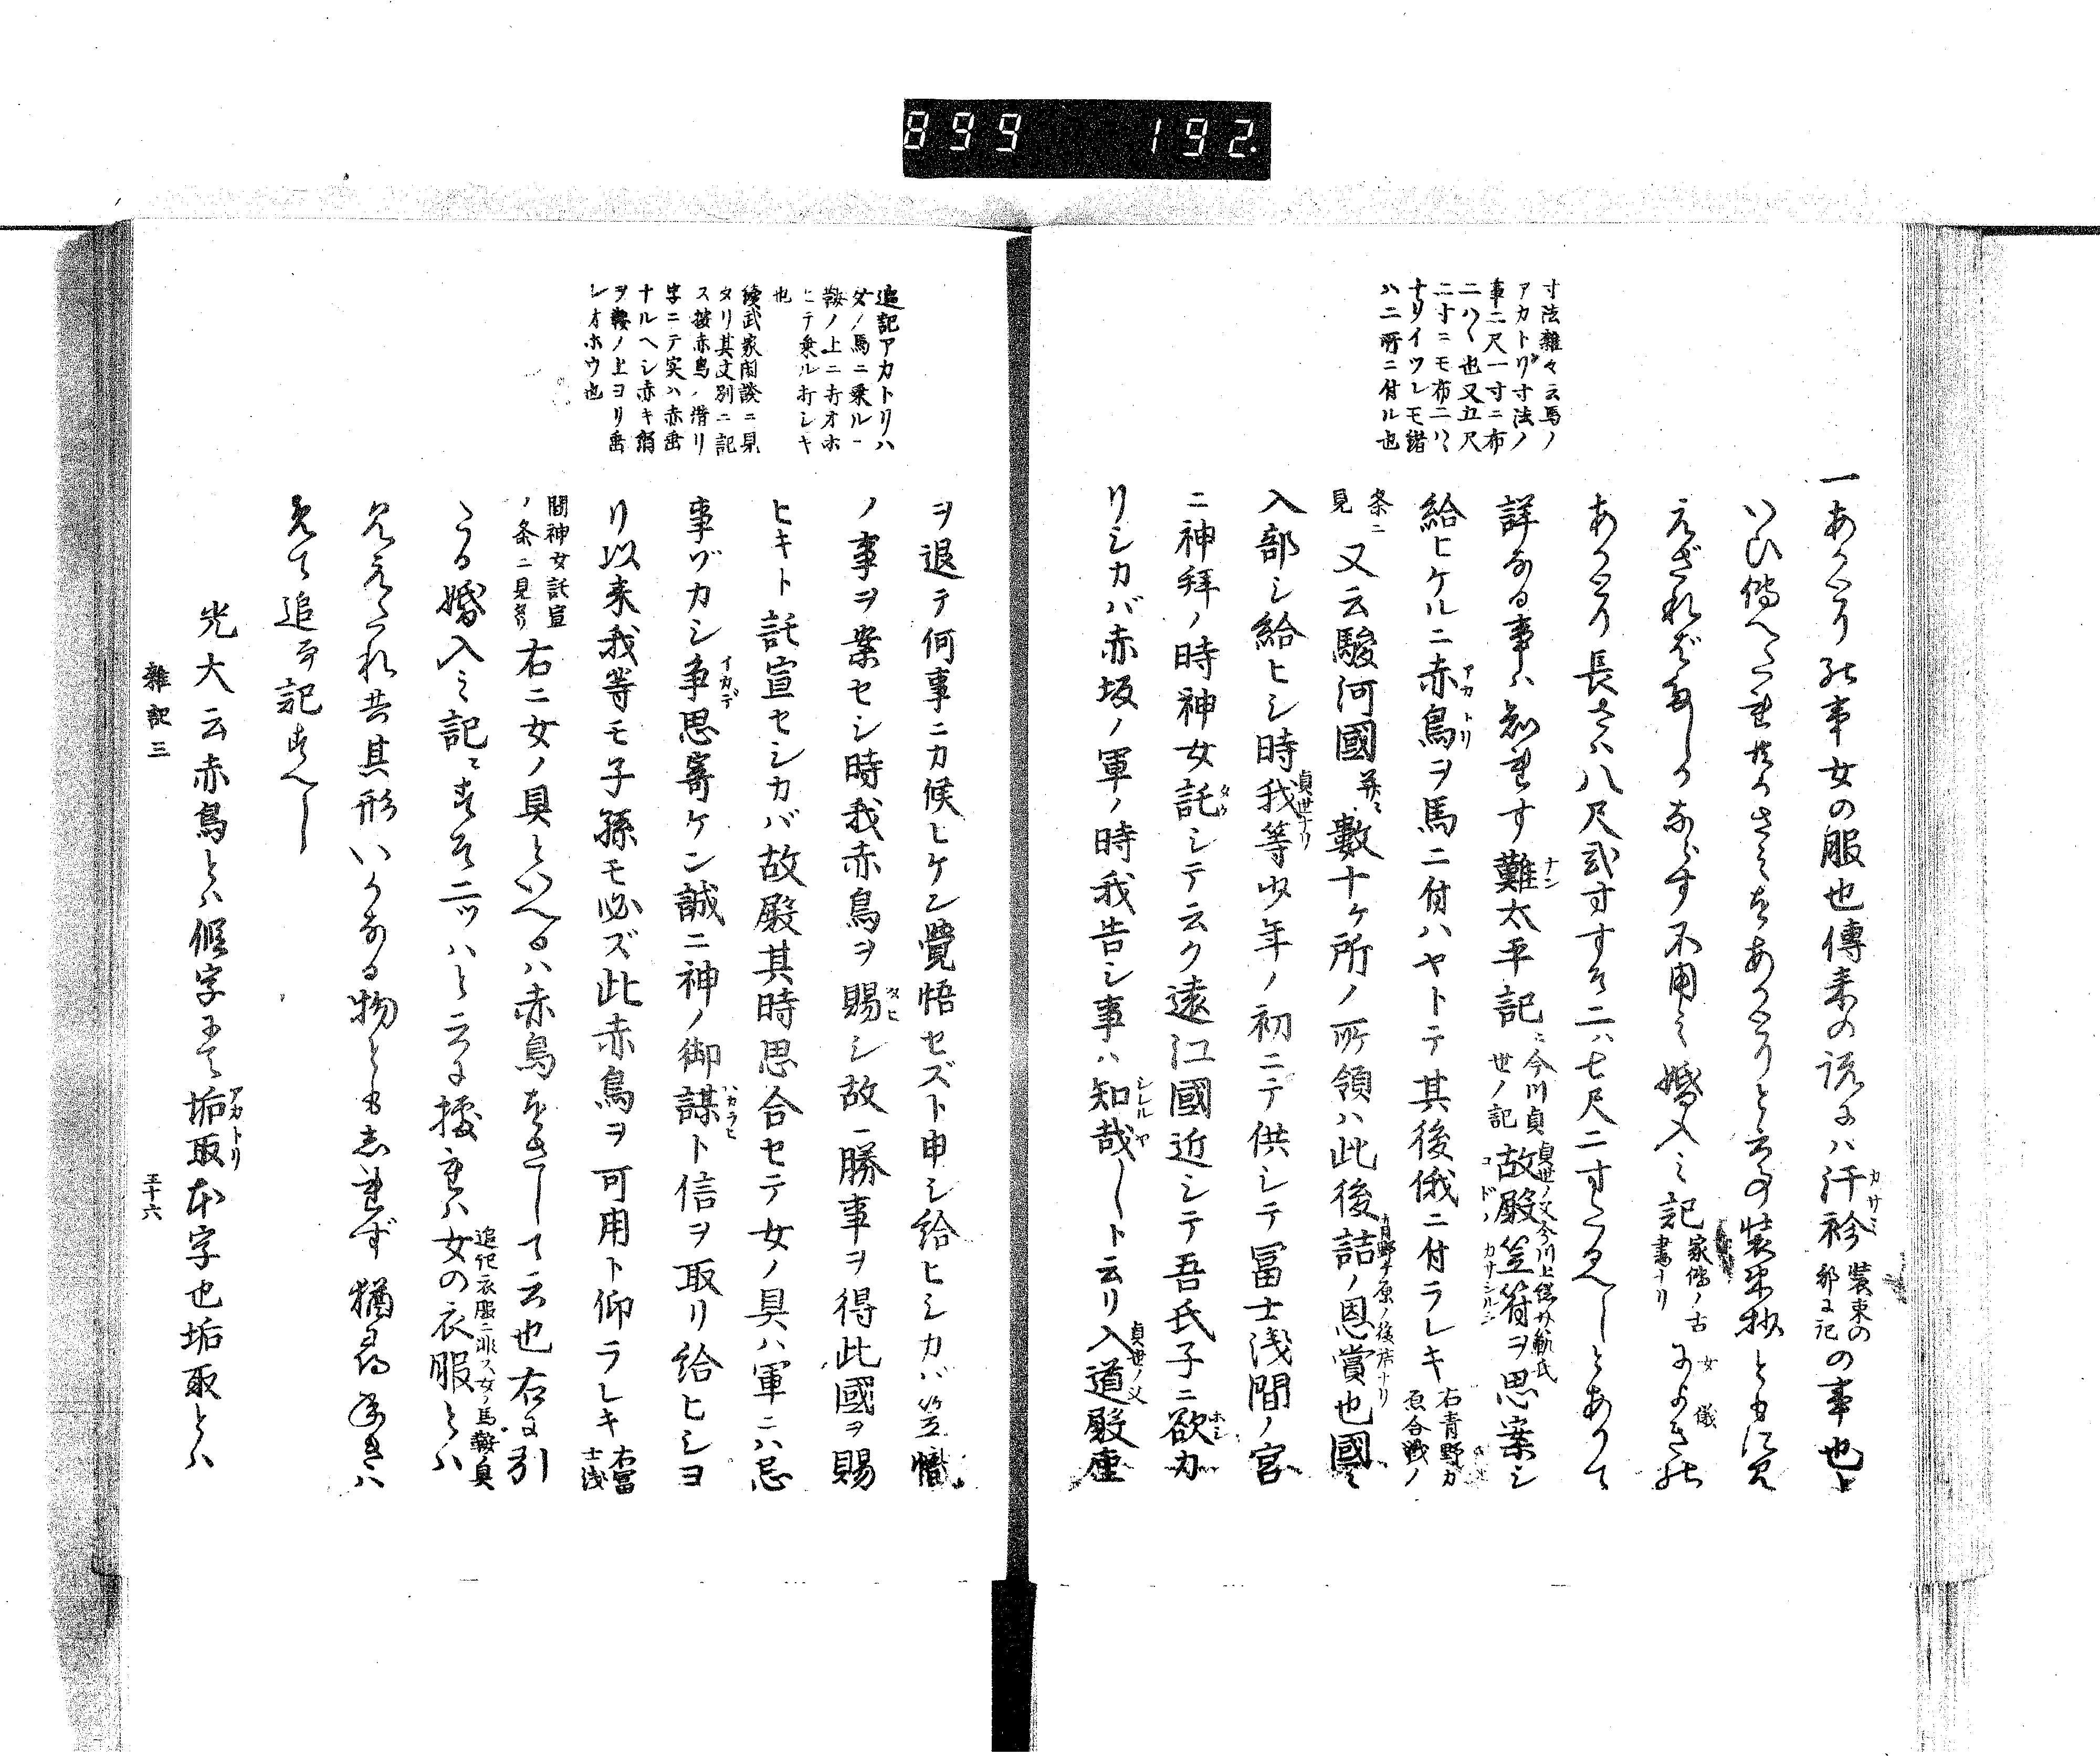 899 192.
寸法雜々云馬ノ
アカトリノ寸法ノ
事二尺一寸ニ布
二ハヾ也又五尺
二寸ニモ布二ハヾ
ナリイツレモ諸
ハニ所ニ付ル也
一あかとりの事女の服也傳来の説には汗衫装束の部に記の事也と
いひ傳へたれ共かさみをあかとりと云事装束抄ともに見
えざれば
あかとり長さハ八尺弐寸すそ二ハ七尺二寸たるへしとありて
詳なる事ハ知れす難太平記ニ今川貞世ノ記故殿笠符ヲ思案シ
給ヒケルニ赤鳥ヲ馬ニ付ハヤトテ其後俄ニ付ラレキ右青野カ原合戦ノ
条ニ見又云駿河國并ニ數十ヶ所ノ所領ハ此後詰ノ恩賞也國ニ
入部シ給ヒシ時我等少年ノ初ニテ供シテ冨士浅間ノ宮
ニ神拜ノ時神女託シテ云ク遠江國近シテ吾氏子ニ欲カ
リシカバ赤坂ノ軍ノ時我告シ事ハ知哉ート云リ入道殿座
追記アカトリハ
女ノ馬ニ乗ル
鞍ノ上ニ打オホ
ヒテ乗ル打シキ
也
續武家閑談ニ見
タリ其文別ニ記
ス按赤鳥ノ借リ
字ニテ実ハ赤垂
ナルヘシ赤キ絹
ヲ鞍ノ上ヨリ垂
レオホウ也
ヲ退テ何事ニカ候ヒケン覺悟セズト申シ給ヒシカバ笠幟
ノ事ヲ案セシ時我赤鳥ヲ賜シ故ニ勝事ヲ得此國ヲ賜
ヒキト託宣セシカバ故殿其時思合セテ女ノ具ハ軍ニハ忌
事ヅカシ争思寄ケン誠ニ神ノ御謀ト信ヲ取リ給ヒシヨ
リ以来我等モ子孫モ必ズ此赤鳥ヲ可用ト仰ラレキ右冨士浅
間神女託宣ノ条ニ見タリ右ニ女ノ具といへるハ赤鳥をさして云也右に引
たる婚入ミ記ニすそ二ツハと云に據れハ女の衣服とハ追记衣服ニ非ス女ノ馬鞍ノ具
見えたれ共其形いかなる物とも志れず猶
見て追而記すへし
光大云赤鳥とハ假字にて垢取本字也垢取とハ
雜記三
五十六